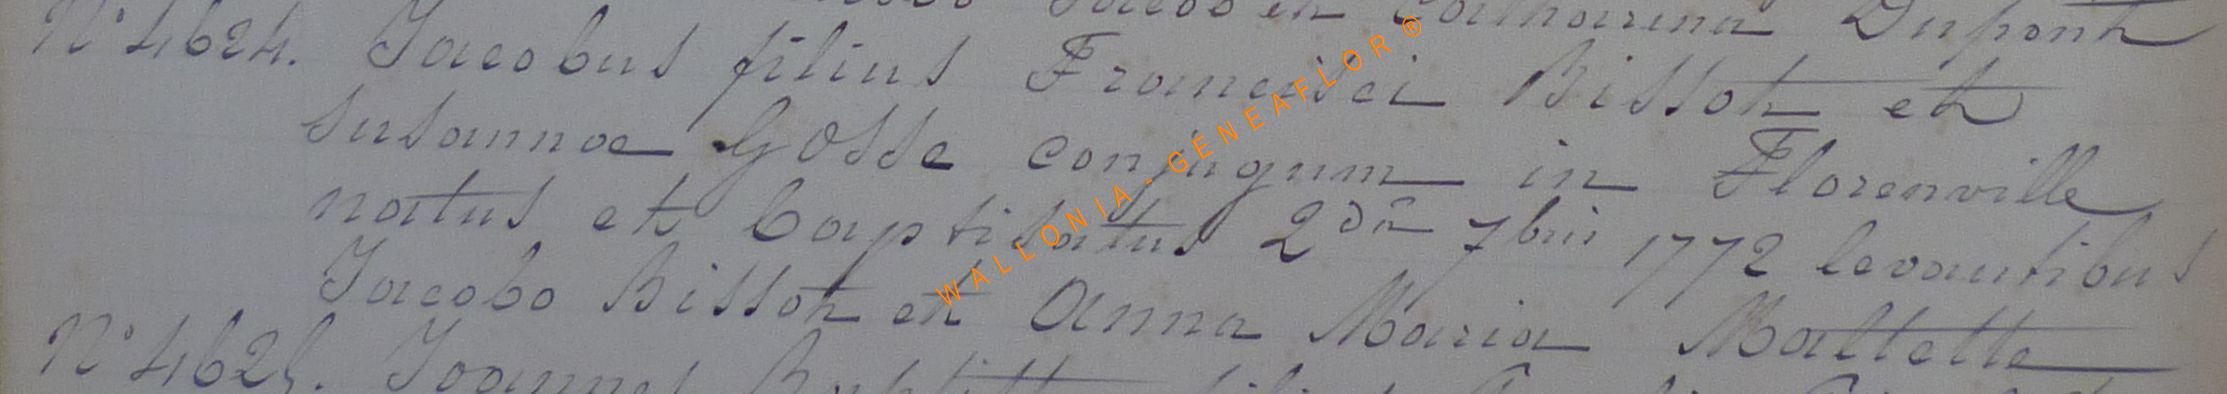 Jacob et Catharina Dupont
N° 4624. Jacobus filius Francisci Bissot et
Susannae Gosse conjugum in Florenville
natus et baptisatus 2da 7bris 1772 levantibus
Jacobo Bissot et Anna Maria Maltette
N° 4625. Joannes
WALLONIA - GENEAFLOR ®